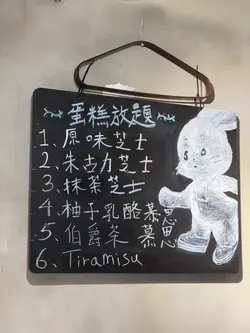 蛋糕放題
1、原味芝士
2、朱古力芝士
3、抹茶芝士
4、柚子乳酪慕思
5、伯爵茶 慕思
6、Tiramisu